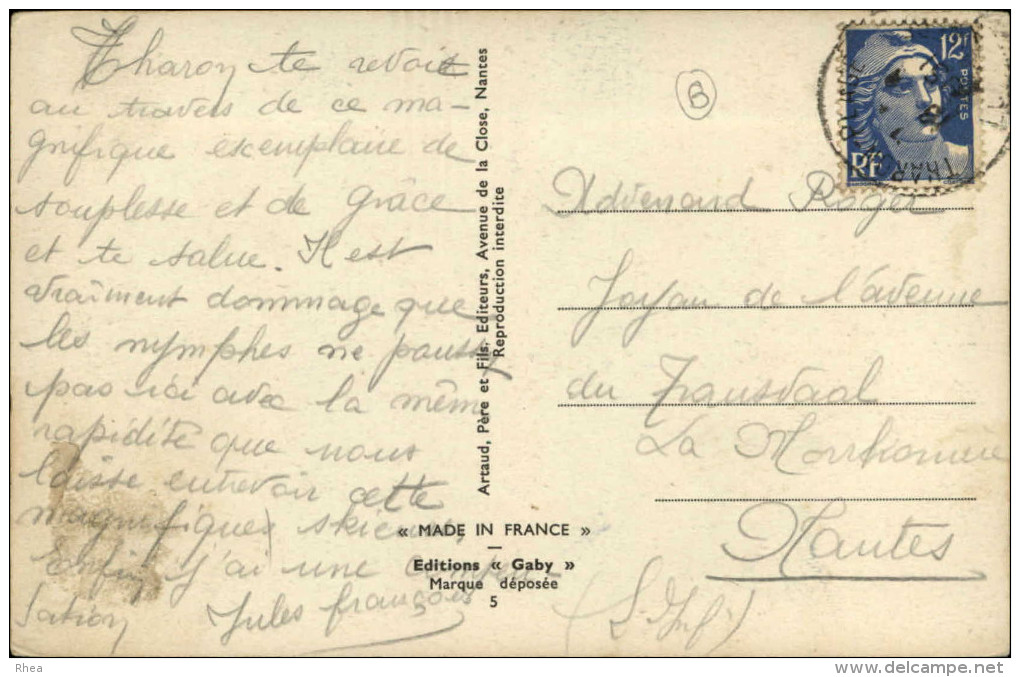 Tharon te revoit
au travers de ce ma-
gnifique exemplaire de
souplesse et de grâce
et te salue. Il est
vraiment dommage que
les nymphes ne
pas ici avec la même
rapidité que nous
laisse entrevoir cette
magnifique
Enfin j'ai une compen-
sation Jules françois
Artaud, Père et Fils, Editeurs, Avenue de la Close, Nantes
Reproduction interdite
« MADE IN FRANCE »
Editions « Gaby »
Marque déposée
5
B
12F
POSTES
RF
THARON PLAGE
Roger
de l'avenue
du Transvaal
La
Nantes
(L. Inf)
Rhea
delcampe.net